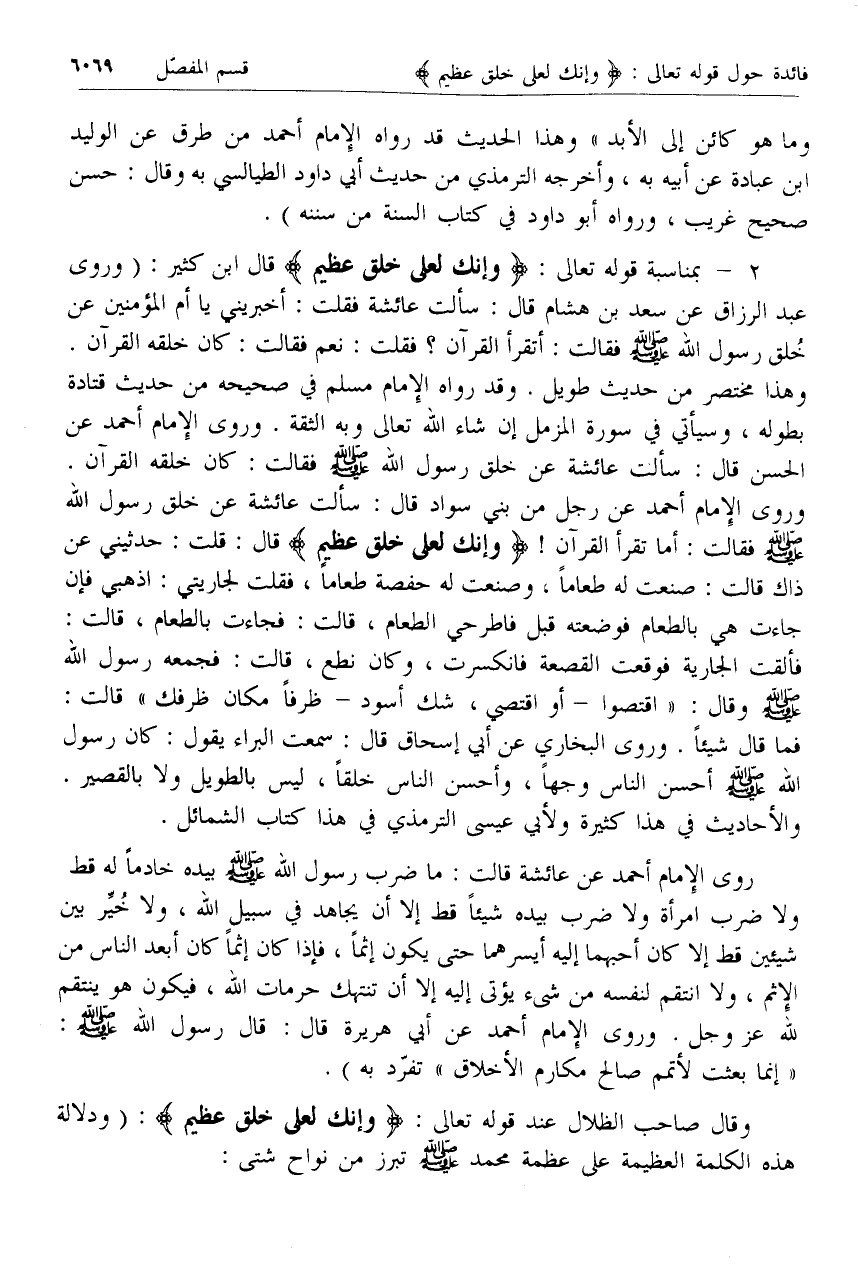 فائدة حول قوله تعالى : ﴿ وإنك لعلى خلق عظيم ﴾ قسم المفصّل ٦٠٦٩
وما هو كائن إلى الأبد » وهذا الحديث قد رواه الإمام أحمد من طرق عن الوليد
ابن عبادة عن أبيه به ، وأخرجه الترمذي من حديث أبي داود الطيالسي به وقال : حسن
صحيح غريب ، ورواه أبو داود في كتاب السنة من سننه ) .
٢ – بمناسبة قوله تعالى : ﴿ وإنك لعلى خلق عظيم ﴾ قال ابن كثير : ( وروى
عبد الرزاق عن سعد بن هشام قال : سألت عائشة فقلت : أخبريني يا أم المؤمنين عن
خُلق رسول الله ﷺ فقالت : أتقرأ القرآن ؟ فقلت : نعم فقالت : كان خلقه القرآن .
وهذا مختصر من حديث طويل . وقد رواه الإمام مسلم في صحيحه من حديث قتادة
بطوله ، وسيأتي في سورة المزمل إن شاء الله تعالى وبه الثقة . وروى الإمام أحمد عن
الحسن قال : سألت عائشة عن خلق رسول الله ﷺ فقالت : كان خلقه القرآن .
وروى الإمام أحمد عن رجل من بني سواد قال : سألت عائشة عن خلق رسول الله
ﷺ فقالت : أما تقرأ القرآن ! ﴿ وإنك لعلى خلق عظيم ﴾ قال : قلت : حدثيني عن
ذاك قالت : صنعت له طعاماً ، وصنعت له حفصة طعاماً ، فقلت لجاريتي : اذهبي فإن
جاءت هي بالطعام فوضعته قبل فاطرحي الطعام ، قالت : فجاءت بالطعام ، قالت :
فألقت الجارية فوقعت القصعة فانكسرت ، وكان نطع ، قالت : فجمعه رسول الله
ﷺ وقال : « اقتصوا – أو اقتصي ، شك أسود – ظرفاً مكان ظرفك » قالت :
فما قال شيئاً . وروى البخاري عن أبي إسحاق قال : سمعت البراء يقول : كان رسول
الله ﷺ أحسن الناس وجهاً ، وأحسن الناس خلقاً ، ليس بالطويل ولا بالقصير .
والأحاديث في هذا كثيرة ولأبي عيسى الترمذي في هذا كتاب الشمائل .
روى الإمام أحمد عن عائشة قالت : ما ضرب رسول الله ﷺ بيده خادماً له قط
ولا ضرب امرأة ولا ضرب بيده شيئاً قط إلا أن يجاهد في سبيل الله ، ولا خُيِّر بين
شيئين قط إلا كان أحبهما إليه أيسرهما حتى يكون إثماً ، فإذا كان إثماً كان أبعد الناس من
الإثم ، ولا انتقم لنفسه من شيء يؤتى إليه إلا أن تنتهك حرمات الله ، فيكون هو ينتقم
لله عز وجل . وروى الإمام أحمد عن أبي هريرة قال : قال رسول الله ﷺ :
« إنما بعثت لأتمم صالح مكارم الأخلاق » تفرّد به ) .
وقال صاحب الظلال عند قوله تعالى : ﴿ وإنك لعلى خلق عظيم ﴾ : ( ودلالة
هذه الكلمة العظيمة على عظمة محمد ﷺ تبرز من نواح شتى :